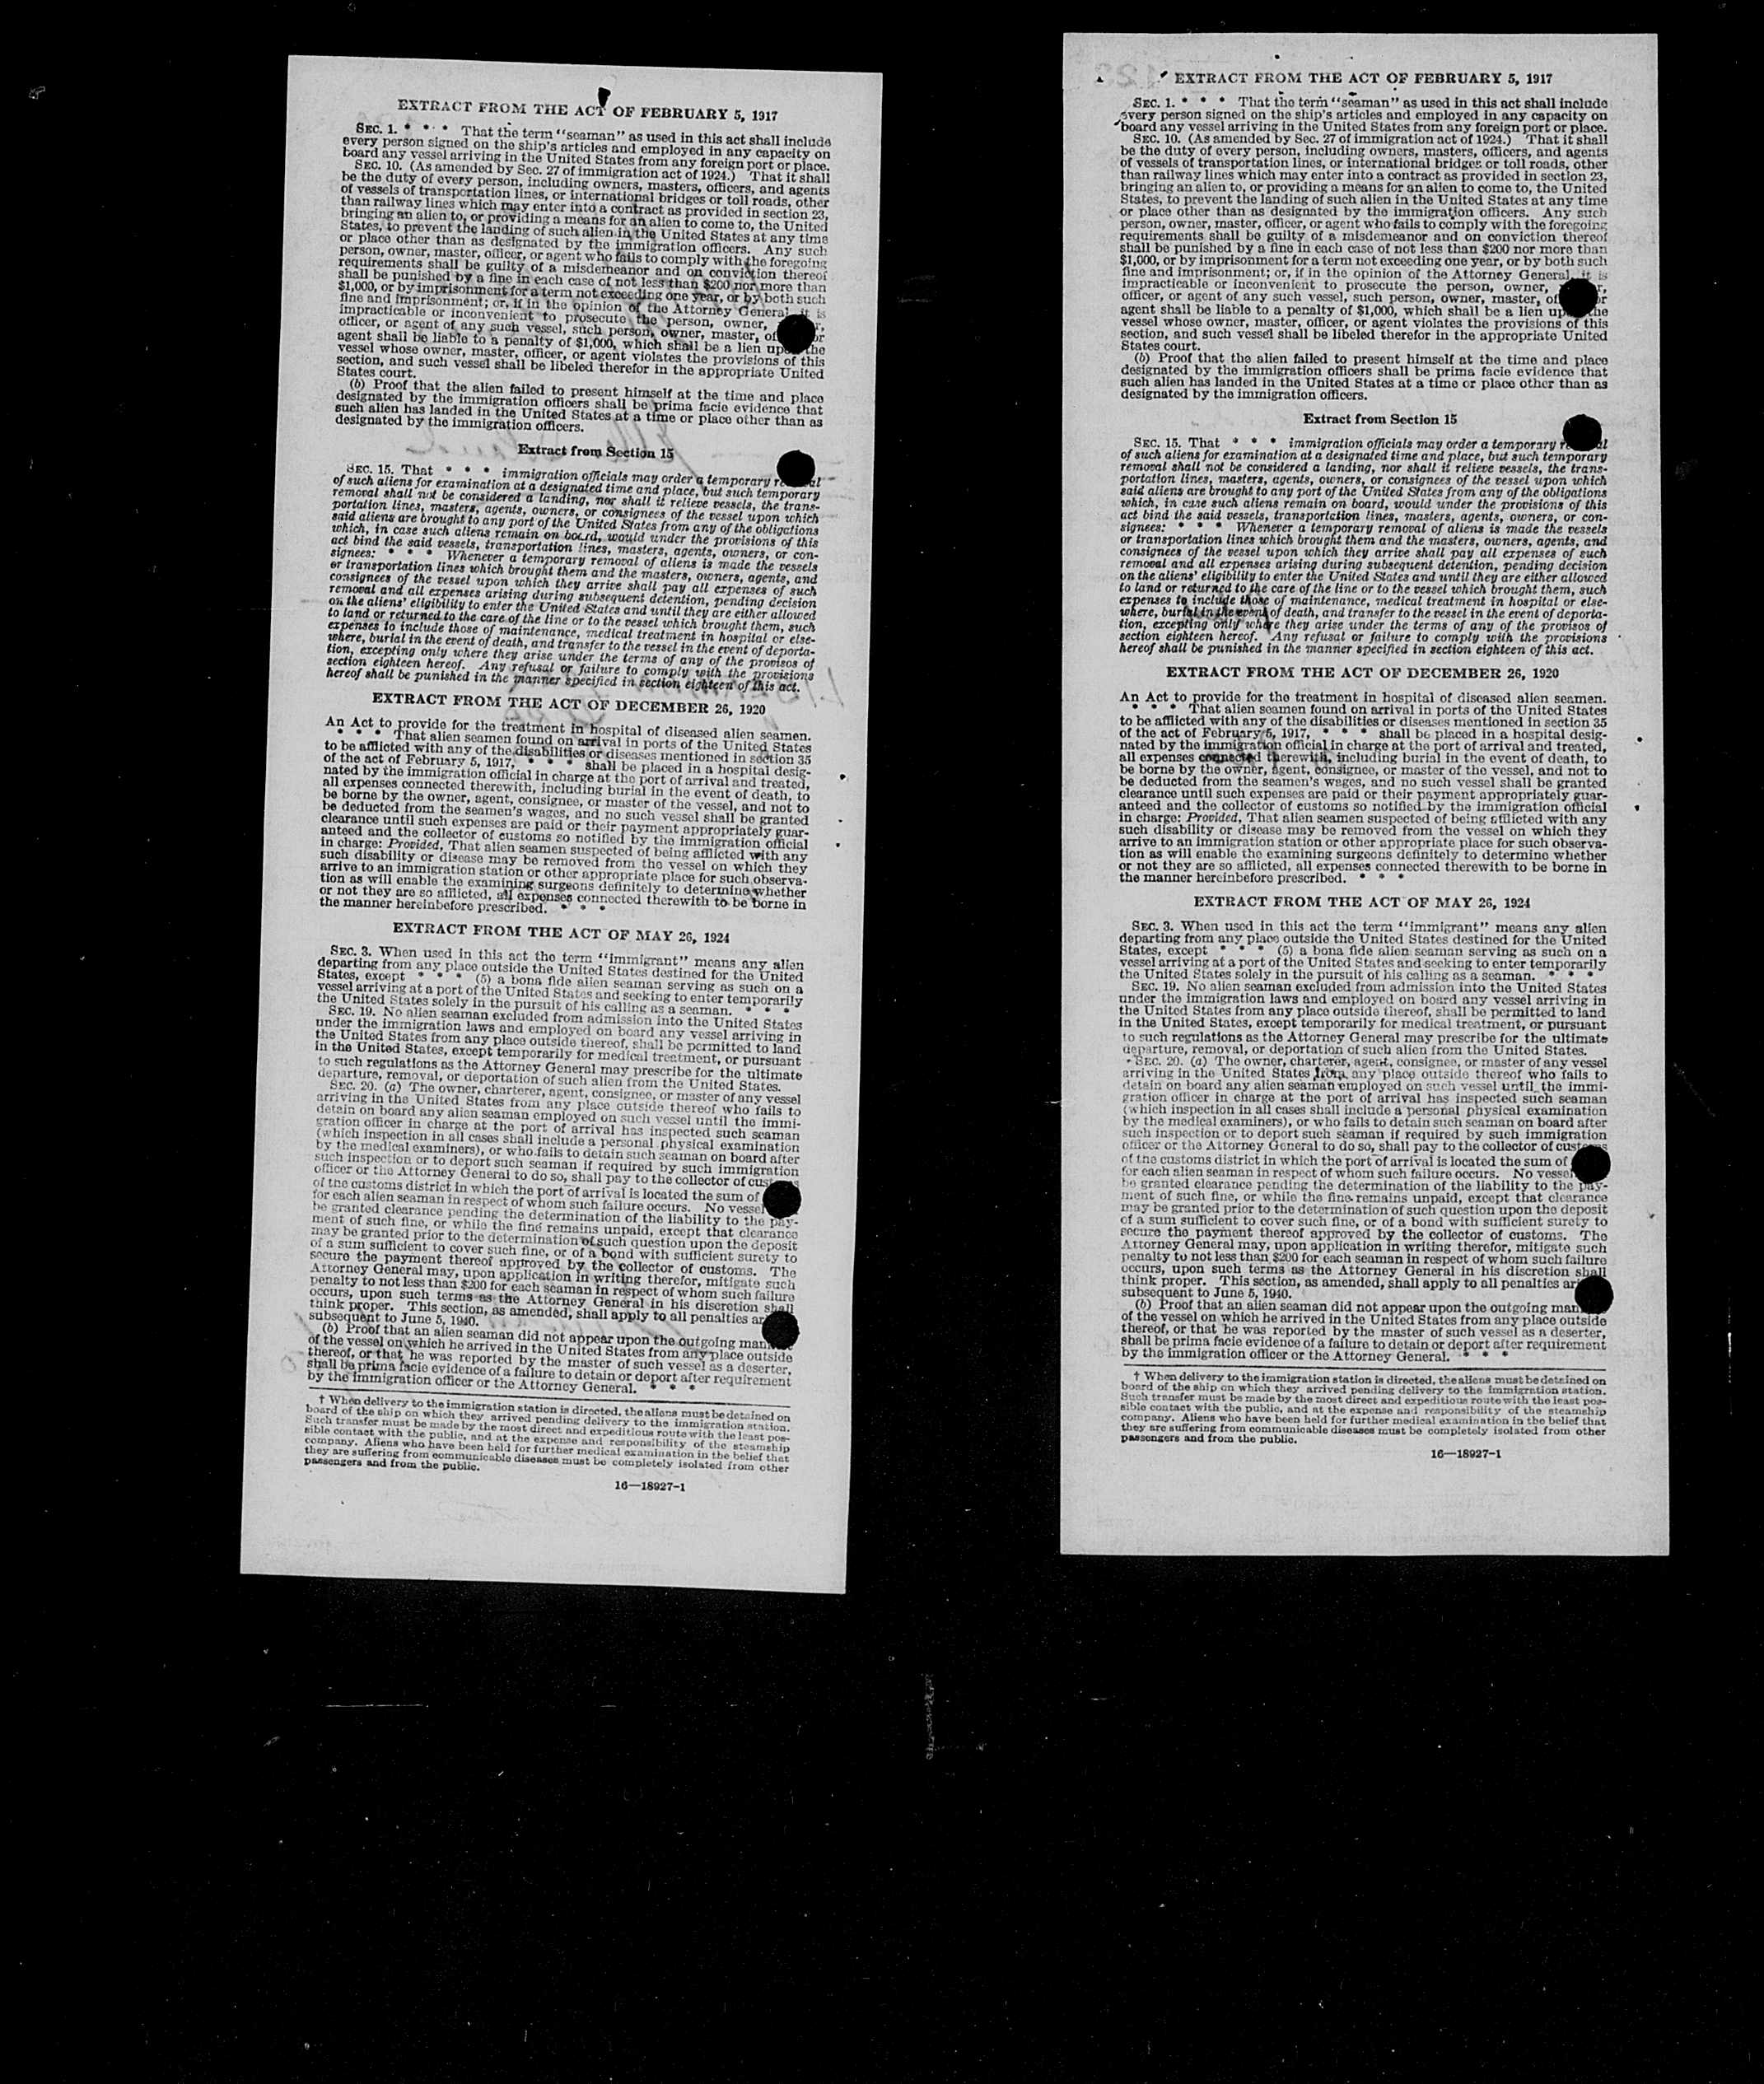 EXTRACT FROM THE ACT OF FEBRUARY 5, 1917
SEC. 1. * * * That the term "seaman" as used in this act shall include
every person signed on the ship's articles and employed in any capacity on
board any vessel arriving in the United States from any foreign port or place.
SEC. 10. (As amended by Sec. 27 of immigration act of 1924.) That it shall
be the duty of every person, including owners, masters, officers, and agents
of vessels of transportation lines, or international bridges or toll roads, other
than railway lines which may enter into a contract as provided in section 23,
bringing an alien to, or providing a means for an alien to come to, the United
States, to prevent the landing of such alien in the United States at any time
or place other than as designated by the immigration officers. Any such
person, owner, master, officer, or agent who fails to comply with the foregoing
requirements shall be guilty of a misdemeanor and on conviction thereof
shall be punished by a fine in each case of not less than $200 nor more than
$1,000, or by imprisonment for a term not exceeding one year, or by both such
fine and imprisonment; or, if in the opinion of the Attorney General, it is
impracticable or inconvenient to prosecute the person, owner,
officer, or agent of any such vessel, such person, owner, master,
agent shall be liable to a penalty of $1,000, which shall be a lien upon the
vessel whose owner, master, officer, or agent violates the provisions of this
section, and such vessel shall be libeled therefor in the appropriate United
States court.
(b) Proof that the alien failed to present himself at the time and place
designated by the immigration officers shall be prima facie evidence that
such alien has landed in the United States at a time or place other than as
designated by the immigration officers.
Extract from Section 15
SEC. 15. That * * * immigration officials may order a temporary
of such aliens for examination at a designated time and place, but such temporary
removal shall not be considered a landing, nor shall it relieve vessels, the trans-
portation lines, masters, agents, owners, or consignees of the vessel upon which
said aliens are brought to any port of the United States from any of the obligations
which, in case such aliens remain on board, would under the provisions of this
act bind the said vessels, transportation lines, masters, agents, owners, or con-
signees: * * * Whenever a temporary removal of aliens is made the vessels
or transportation lines which brought them and the masters, owners, agents, and
consignees of the vessel upon which they arrive shall pay all expenses of such
removal and all expenses arising during subsequent detention, pending decision
on the aliens' eligibility to enter the United States and until they are either allowed
to land or returned to the care of the line or to the vessel which brought them, such
expenses to include those of maintenance, medical treatment in hospital or else-
where, burial in the event of death, and transfer to the vessel in the event of deporta-
tion, excepting only where they arise under the terms of any of the provisos of
section eighteen hereof. Any refusal or failure to comply with the provisions
hereof shall be punished in the manner specified in section eighteen of this act.
EXTRACT FROM THE ACT OF DECEMBER 26, 1920
An Act to provide for the treatment in hospital of diseased alien seamen.
* * * That alien seamen found on arrival in ports of the United States
to be afflicted with any of the disabilities or diseases mentioned in section 35
of the act of February 5, 1917, * * * shall be placed in a hospital desig-
nated by the immigration official in charge at the port of arrival and treated,
all expenses connected therewith, including burial in the event of death, to
be borne by the owner, agent, consignee, or master of the vessel, and not to
be deducted from the seamen's wages, and no such vessel shall be granted
clearance until such expenses are paid or their payment appropriately guar-
anteed and the collector of customs so notified by the immigration official
in charge: Provided, That alien seamen suspected of being afflicted with any
such disability or disease may be removed from the vessel on which they
arrive to an immigration station or other appropriate place for such observa-
tion as will enable the examining surgeons definitely to determine whether
or not they are so afflicted, all expenses connected therewith to be borne in
the manner hereinbefore prescribed. * * *
EXTRACT FROM THE ACT OF MAY 26, 1924
SEC. 3. When used in this act the term "immigrant" means any alien
departing from any place outside the United States destined for the United
States, except * * * (5) a bona fide alien seaman serving as such on a
vessel arriving at a port of the United States and seeking to enter temporarily
the United States solely in the pursuit of his calling as a seaman. * * *
SEC. 19. No alien seaman excluded from admission into the United States
under the immigration laws and employed on board any vessel arriving in
the United States from any place outside thereof, shall be permitted to land
in the United States, except temporarily for medical treatment, or pursuant
to such regulations as the Attorney General may prescribe for the ultimate
departure, removal, or deportation of such alien from the United States.
SEC. 20. (a) The owner, charterer, agent, consignee, or master of any vessel
arriving in the United States from any place outside thereof who fails to
detain on board any alien seaman employed on such vessel until the immi-
gration officer in charge at the port of arrival has inspected such seaman
(which inspection in all cases shall include a personal physical examination
by the medical examiners), or who fails to detain such seaman on board after
such inspection or to deport such seaman if required by such immigration
officer or the Attorney General to do so, shall pay to the collector of customs
of the customs district in which the port of arrival is located the sum of
for each alien seaman in respect of whom such failure occurs. No vessel
be granted clearance pending the determination of the liability to the pay-
ment of such fine, or while the fine remains unpaid, except that clearance
may be granted prior to the determination of such question upon the deposit
of a sum sufficient to cover such fine, or of a bond with sufficient surety to
secure the payment thereof approved by the collector of customs. The
Attorney General may, upon application in writing therefor, mitigate such
penalty to not less than $200 for each seaman in respect of whom such failure
occurs, upon such terms as the Attorney General in his discretion shall
think proper. This section, as amended, shall apply to all penalties
subsequent to June 5, 1940.
(b) Proof that an alien seaman did not appear upon the outgoing
of the vessel on which he arrived in the United States from any place outside
thereof, or that he was reported by the master of such vessel as a deserter,
shall be prima facie evidence of a failure to detain or deport after requirement
by the immigration officer or the Attorney General. * * *
† When delivery to the immigration station is directed, the aliens must be detained on
board of the ship on which they arrived pending delivery to the immigration station.
Such transfer must be made by the most direct and expeditious route with the least pos-
sible contact with the public, and at the expense and responsibility of the steamship
company. Aliens who have been held for further medical examination in the belief that
they are suffering from communicable diseases must be completely isolated from other
passengers and from the public.
16—18927-1
EXTRACT FROM THE ACT OF FEBRUARY 5, 1917
SEC. 1. * * * That the term "seaman" as used in this act shall include
every person signed on the ship's articles and employed in any capacity on
board any vessel arriving in the United States from any foreign port or place.
SEC. 10. (As amended by Sec. 27 of immigration act of 1924.) That it shall
be the duty of every person, including owners, masters, officers, and agents
of vessels of transportation lines, or international bridges or toll roads, other
than railway lines which may enter into a contract as provided in section 23,
bringing an alien to, or providing a means for an alien to come to, the United
States, to prevent the landing of such alien in the United States at any time
or place other than as designated by the immigration officers. Any such
person, owner, master, officer, or agent who fails to comply with the foregoing
requirements shall be guilty of a misdemeanor and on conviction thereof
shall be punished by a fine in each case of not less than $200 nor more than
$1,000, or by imprisonment for a term not exceeding one year, or by both such
fine and imprisonment; or, if in the opinion of the Attorney General, it is
impracticable or inconvenient to prosecute the person, owner,
officer, or agent of any such vessel, such person, owner, master,
agent shall be liable to a penalty of $1,000, which shall be a lien upon the
vessel whose owner, master, officer, or agent violates the provisions of this
section, and such vessel shall be libeled therefor in the appropriate United
States court.
(b) Proof that the alien failed to present himself at the time and place
designated by the immigration officers shall be prima facie evidence that
such alien has landed in the United States at a time or place other than as
designated by the immigration officers.
Extract from Section 15
SEC. 15. That * * * immigration officials may order a temporary
of such aliens for examination at a designated time and place, but such temporary
removal shall not be considered a landing, nor shall it relieve vessels, the trans-
portation lines, masters, agents, owners, or consignees of the vessel upon which
said aliens are brought to any port of the United States from any of the obligations
which, in case such aliens remain on board, would under the provisions of this
act bind the said vessels, transportation lines, masters, agents, owners, or con-
signees: * * * Whenever a temporary removal of aliens is made the vessels
or transportation lines which brought them and the masters, owners, agents, and
consignees of the vessel upon which they arrive shall pay all expenses of such
removal and all expenses arising during subsequent detention, pending decision
on the aliens' eligibility to enter the United States and until they are either allowed
to land or returned to the care of the line or to the vessel which brought them, such
expenses to include those of maintenance, medical treatment in hospital or else-
where, burial in the event of death, and transfer to the vessel in the event of deporta-
tion, excepting only where they arise under the terms of any of the provisos of
section eighteen hereof. Any refusal or failure to comply with the provisions
hereof shall be punished in the manner specified in section eighteen of this act.
EXTRACT FROM THE ACT OF DECEMBER 26, 1920
An Act to provide for the treatment in hospital of diseased alien seamen.
* * * That alien seamen found on arrival in ports of the United States
to be afflicted with any of the disabilities or diseases mentioned in section 35
of the act of February 5, 1917, * * * shall be placed in a hospital desig-
nated by the immigration official in charge at the port of arrival and treated,
all expenses connected therewith, including burial in the event of death, to
be borne by the owner, agent, consignee, or master of the vessel, and not to
be deducted from the seamen's wages, and no such vessel shall be granted
clearance until such expenses are paid or their payment appropriately guar-
anteed and the collector of customs so notified by the immigration official
in charge: Provided, That alien seamen suspected of being afflicted with any
such disability or disease may be removed from the vessel on which they
arrive to an immigration station or other appropriate place for such observa-
tion as will enable the examining surgeons definitely to determine whether
or not they are so afflicted, all expenses connected therewith to be borne in
the manner hereinbefore prescribed. * * *
EXTRACT FROM THE ACT OF MAY 26, 1924
SEC. 3. When used in this act the term "immigrant" means any alien
departing from any place outside the United States destined for the United
States, except * * * (5) a bona fide alien seaman serving as such on a
vessel arriving at a port of the United States and seeking to enter temporarily
the United States solely in the pursuit of his calling as a seaman. * * *
SEC. 19. No alien seaman excluded from admission into the United States
under the immigration laws and employed on board any vessel arriving in
the United States from any place outside thereof, shall be permitted to land
in the United States, except temporarily for medical treatment, or pursuant
to such regulations as the Attorney General may prescribe for the ultimate
departure, removal, or deportation of such alien from the United States.
SEC. 20. (a) The owner, charterer, agent, consignee, or master of any vessel
arriving in the United States from any place outside thereof who fails to
detain on board any alien seaman employed on such vessel until the immi-
gration officer in charge at the port of arrival has inspected such seaman
(which inspection in all cases shall include a personal physical examination
by the medical examiners), or who fails to detain such seaman on board after
such inspection or to deport such seaman if required by such immigration
officer or the Attorney General to do so, shall pay to the collector of customs
of the customs district in which the port of arrival is located the sum of
for each alien seaman in respect of whom such failure occurs. No vessel
be granted clearance pending the determination of the liability to the pay-
ment of such fine, or while the fine remains unpaid, except that clearance
may be granted prior to the determination of such question upon the deposit
of a sum sufficient to cover such fine, or of a bond with sufficient surety to
secure the payment thereof approved by the collector of customs. The
Attorney General may, upon application in writing therefor, mitigate such
penalty to not less than $200 for each seaman in respect of whom such failure
occurs, upon such terms as the Attorney General in his discretion shall
think proper. This section, as amended, shall apply to all penalties
subsequent to June 5, 1940.
(b) Proof that an alien seaman did not appear upon the outgoing
of the vessel on which he arrived in the United States from any place outside
thereof, or that he was reported by the master of such vessel as a deserter,
shall be prima facie evidence of a failure to detain or deport after requirement
by the immigration officer or the Attorney General. * * *
† When delivery to the immigration station is directed, the aliens must be detained on
board of the ship on which they arrived pending delivery to the immigration station.
Such transfer must be made by the most direct and expeditious route with the least pos-
sible contact with the public, and at the expense and responsibility of the steamship
company. Aliens who have been held for further medical examination in the belief that
they are suffering from communicable diseases must be completely isolated from other
passengers and from the public.
16—18927-1